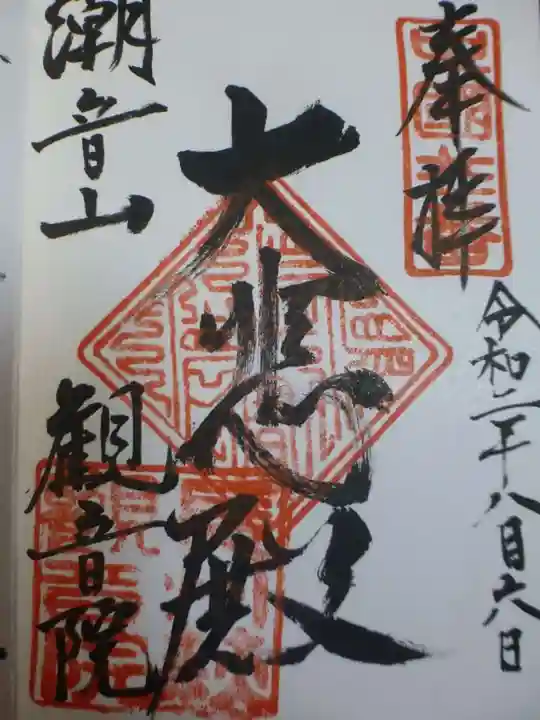 奉拝
令和二年八月六日
大悲殿
潮音山
観音院